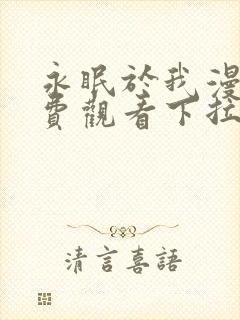 永眠於我漫
費觀看下拉
清言喜語